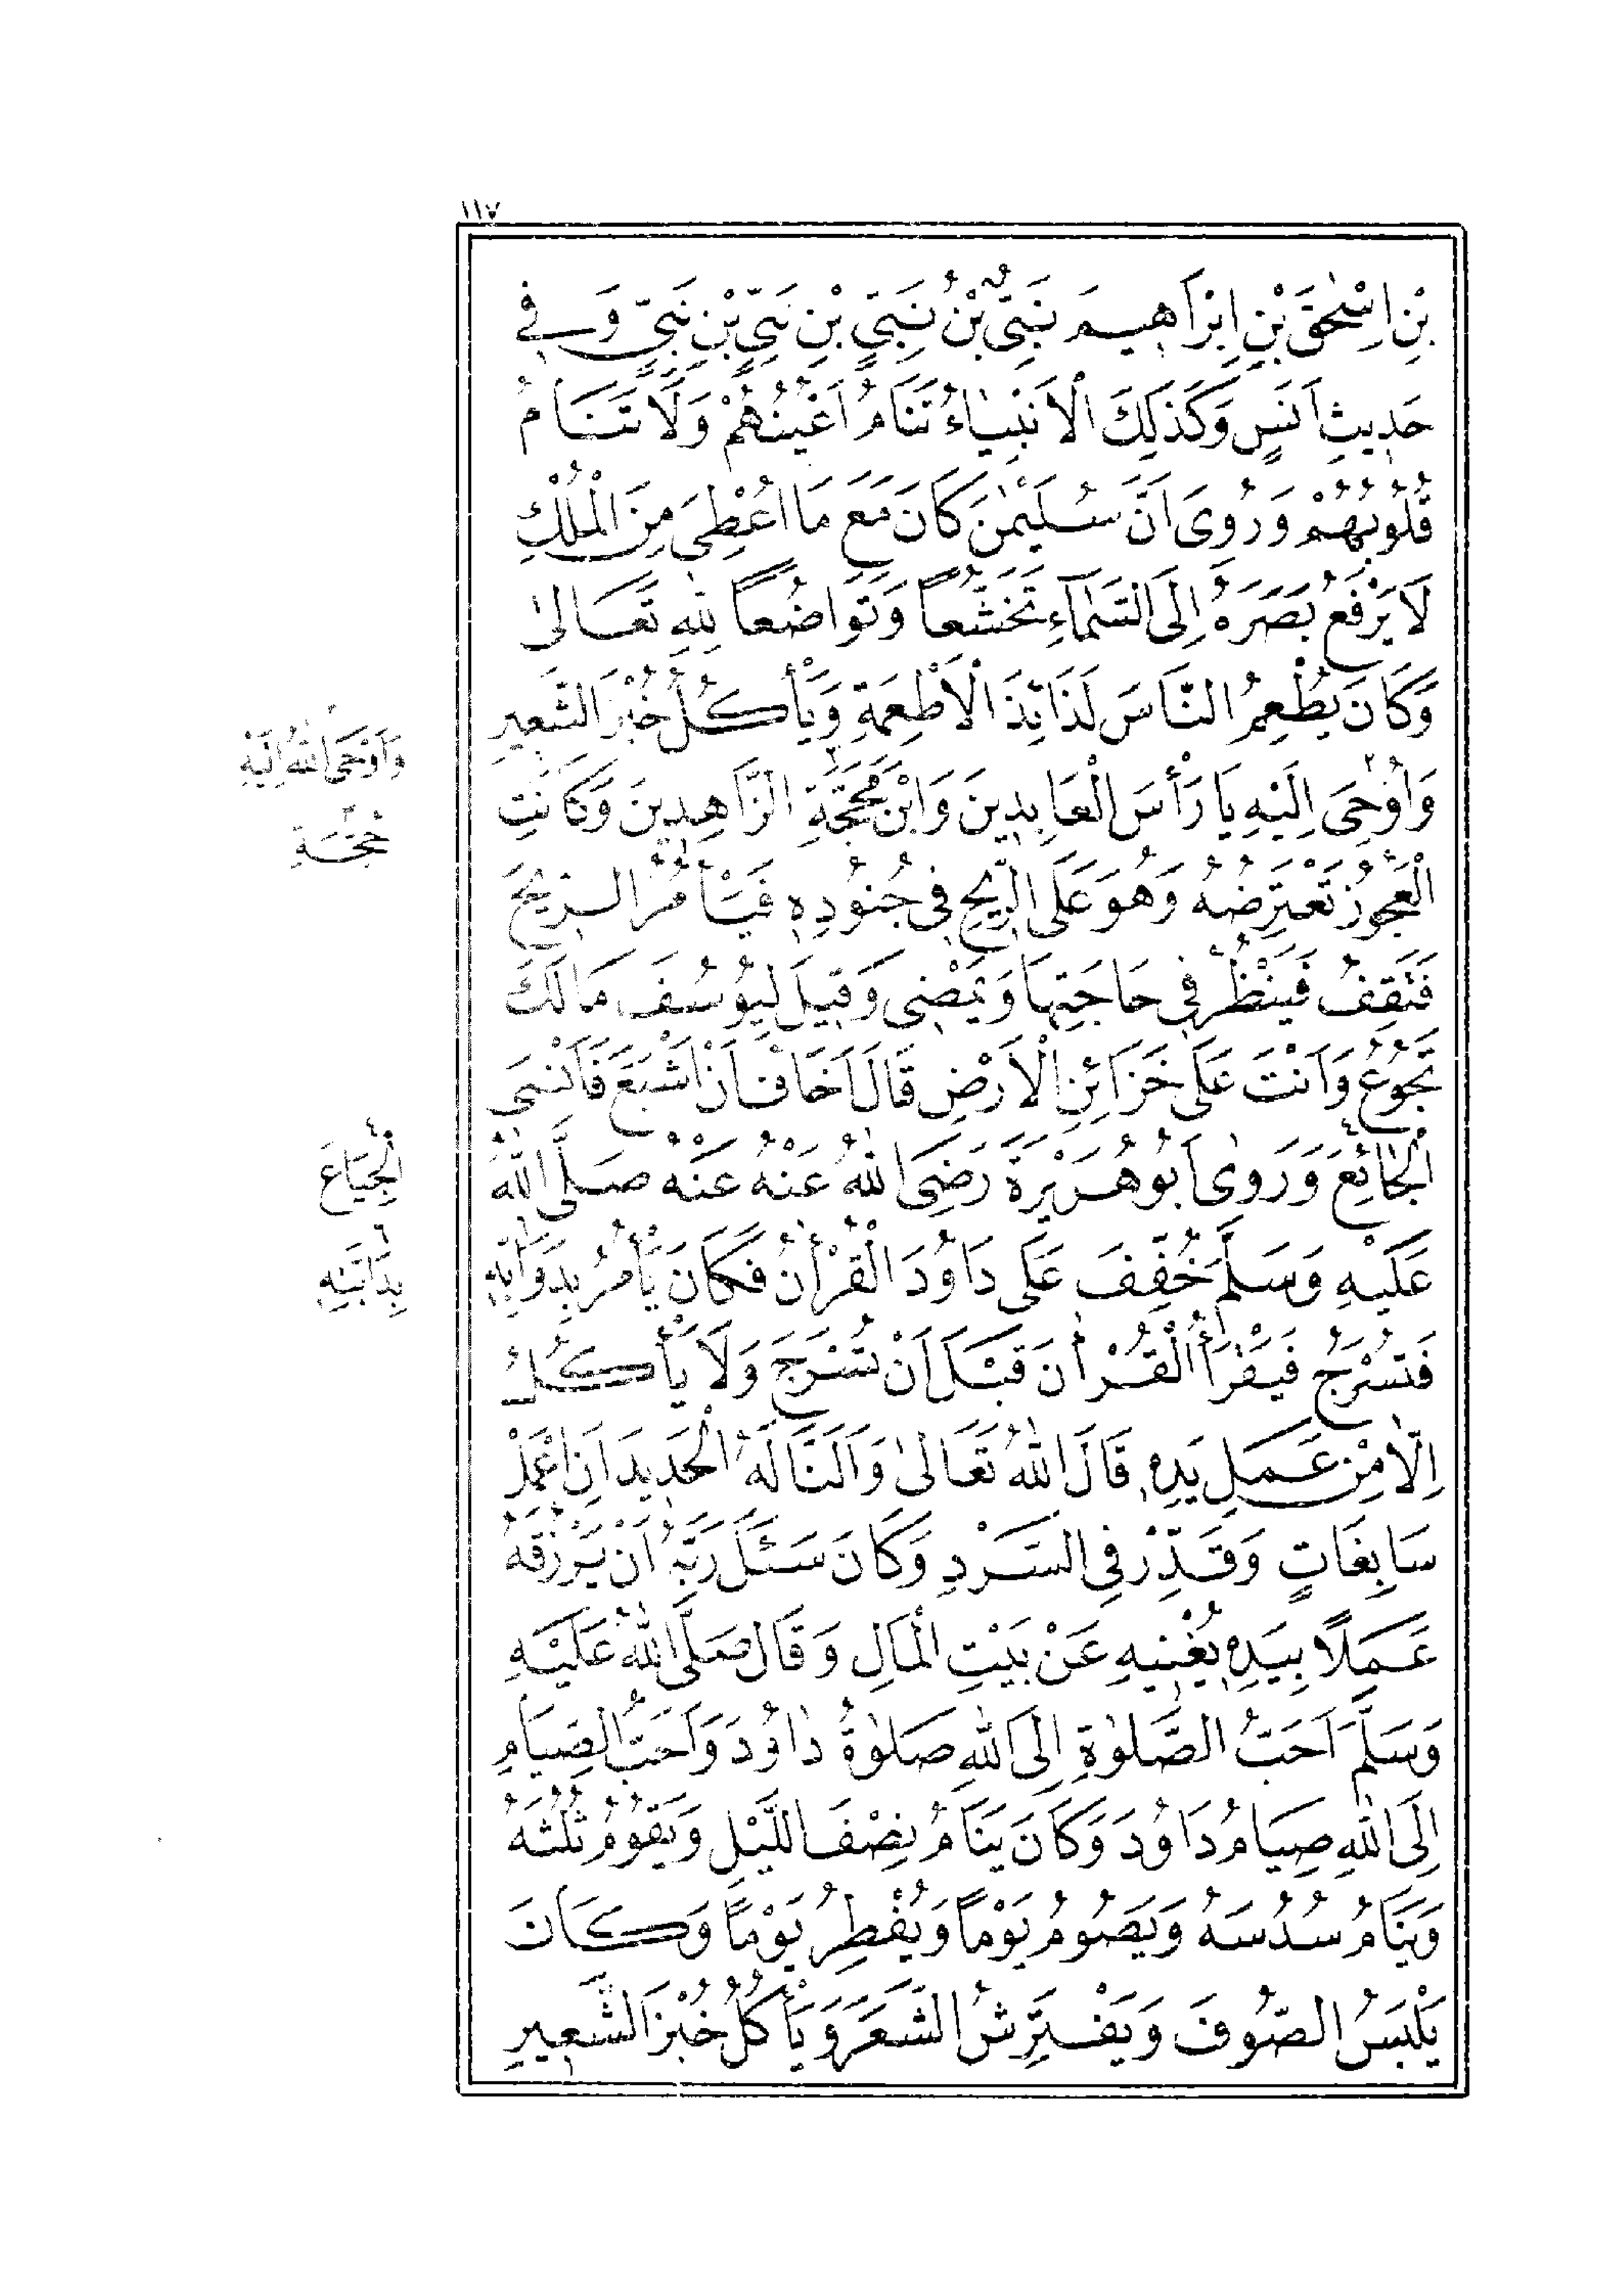 ١١٧
بْنِ اِسْحٰقَ بْنِ اِبْرَاهِيمَ نَبِيُّ بْنُ نَبِيٍّ بْنِ نَبِيٍّ بْنِ نَبِيٍّ وَفِي
حَدِيثِ اَنَسٍ وَكَذٰلِكَ الْاَنْبِيَاءُ تَنَامُ اَعْيُنُهُمْ وَلَا تَنَامُ
قُلُوبُهُمْ وَرُوِىَ اَنَّ سُلَيْمٰنَ كَانَ مَعَ مَا اُعْطِىَ مِنَ الْمُلْكِ
لَا يَرْفَعُ بَصَرَهُ اِلَى السَّمَاءِ تَخَشُّعاً وَتَوَاضُعاً لِلّٰهِ تَعَالٰى
وَكَانَ يُطْعِمُ النَّاسَ لَذَائِذَ الْاَطْعِمَةِ وَيَأْكُلُ خُبْزَ الشَّعِيرِ
وَاُوحِىَ اِلَيْهِ يَا رَأْسَ الْعَابِدِينَ وَابْنَ مَحَجَّةِ الزَّاهِدِينَ وَكَانَتِ
الْعَجُوزُ تَعْتَرِضُهُ وَهُوَ عَلَى الرِّيحِ فِى جُنُودِهِ فَيَأْمُرُ الرِّيحَ
فَتَقِفُ فَيَنْظُرُ فِى حَاجَتِهَا وَيَمْضِى وَقِيلَ لِيُوسُفَ مَالَكَ
تَجُوعُ وَاَنْتَ عَلَى خَزَائِنِ الْاَرْضِ قَالَ اَخَافُ اَنْ اَشْبَعَ فَاَنْسَى
الْجَائِعَ وَرَوٰى اَبُو هُرَيْرَةَ رَضِىَ اللّٰهُ عَنْهُ عَنْهُ صَلَّى اللّٰهُ
عَلَيْهِ وَسَلَّمَ خُفِّفَ عَلَى دَاوُدَ الْقُرْاٰنُ فَكَانَ يَأْمُرُ بِدَوَابِّهِ
فَتُسْرَجُ فَيَقْرَأُ الْقُرْاٰنَ قَبْلَ اَنْ تُسْرَجَ وَلَا يَأْكُلُ
اِلَّا مِنْ عَمَلِ يَدِهِ قَالَ اللّٰهُ تَعَالٰى وَاَلَنَّا لَهُ الْحَدِيدَ اَنِ اعْمَلْ
سَابِغَاتٍ وَقَدِّرْ فِى السَّرْدِ وَكَانَ سَئَلَ رَبَّهُ اَنْ يَرْزُقَهُ
عَمَلًا بِيَدِهِ يُغْنِيهِ عَنْ بَيْتِ الْمَالِ وَقَالَ صَلَّى اللّٰهُ عَلَيْهِ
وَسَلَّمَ اَحَبُّ الصَّلٰوةِ اِلَى اللّٰهِ صَلٰوةُ دَاوُدَ وَاَحَبُّ الصِّيَامِ
اِلَى اللّٰهِ صِيَامُ دَاوُدَ وَكَانَ يَنَامُ نِصْفَ اللَّيْلِ وَيَقُومُ ثُلُثَهُ
وَيَنَامُ سُدُسَهُ وَيَصُومُ يَوْماً وَيُفْطِرُ يَوْماً وَكَانَ
يَلْبَسُ الصُّوفَ وَيَفْتَرِشُ الشَّعَرَ وَيَأْكُلُ خُبْزَ الشَّعِيرِ
وَاَوْحَى اللّٰهُ اِلَيْهِ
الْجِيَاعَ
بِدَابَّتِهِ